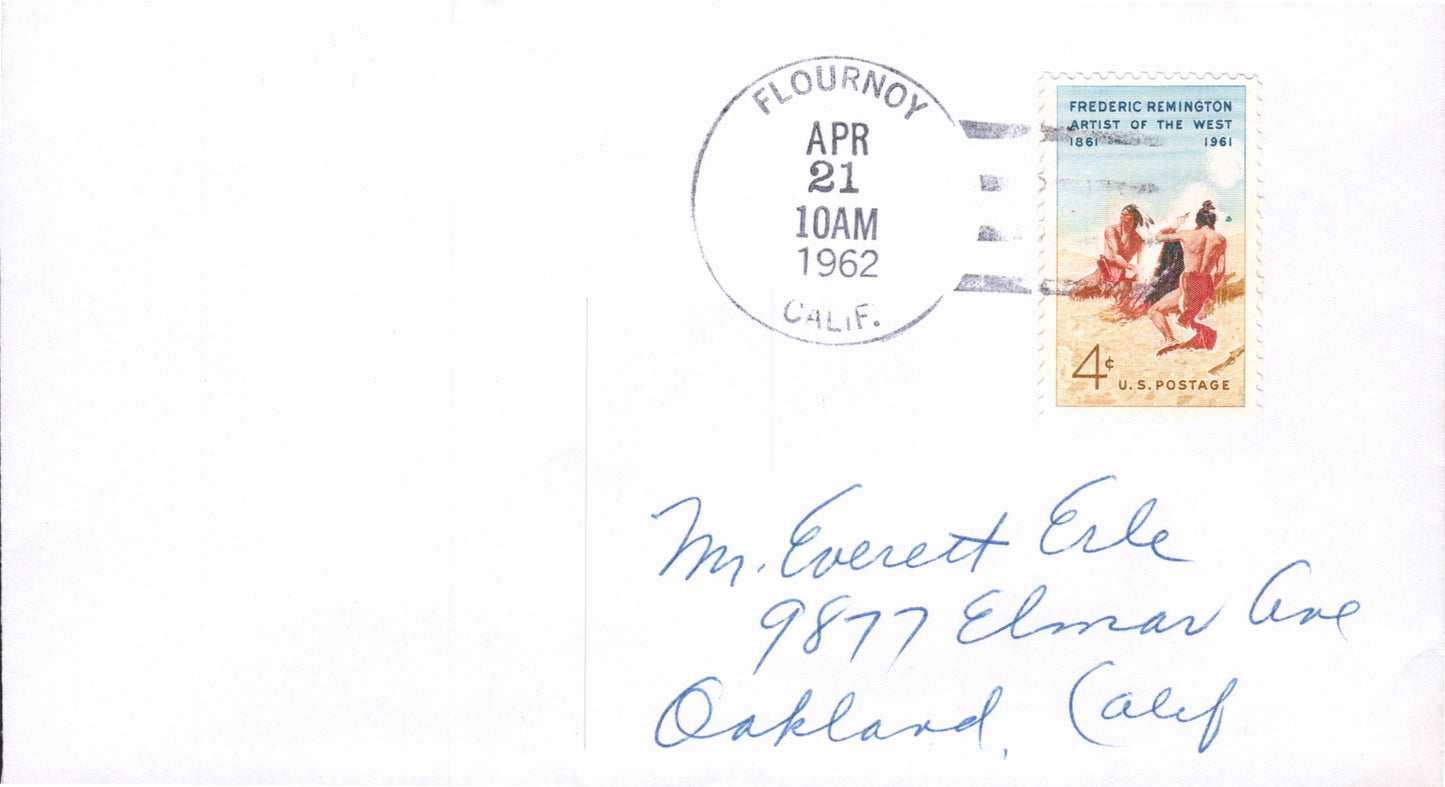 FLOURNOY
APR
21
10AM
1962
CALIF.
FREDERIC REMINGTON
ARTIST OF THE WEST
1861 1961
4¢ U.S. POSTAGE
Mr. Everett Erle
9877 Elmar Ave
Oakland, Calif